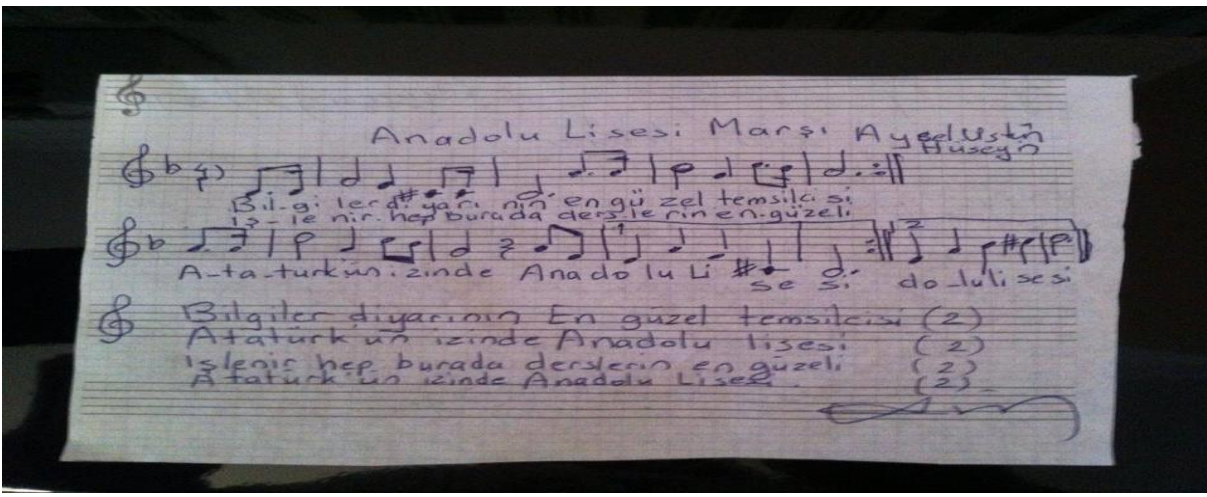 Anadolu Lisesi Marşı Aysel Üstün
Hüseyn
Bil-gi lerdi yarı nin en gü zel temsilci si
iş-le nir hep burada ders le rin en-güzeli
A-ta-türkün izinde Anado lu Li se si do-lulisesi
Bilgiler diyarının En güzel temsilcisi (2)
Atatürk'ün izinde Anadolu lisesi (2)
işlenir hep burada derslerin en güzeli (2)
Atatürk'ün izinde Anadolu Lisesi. (2)